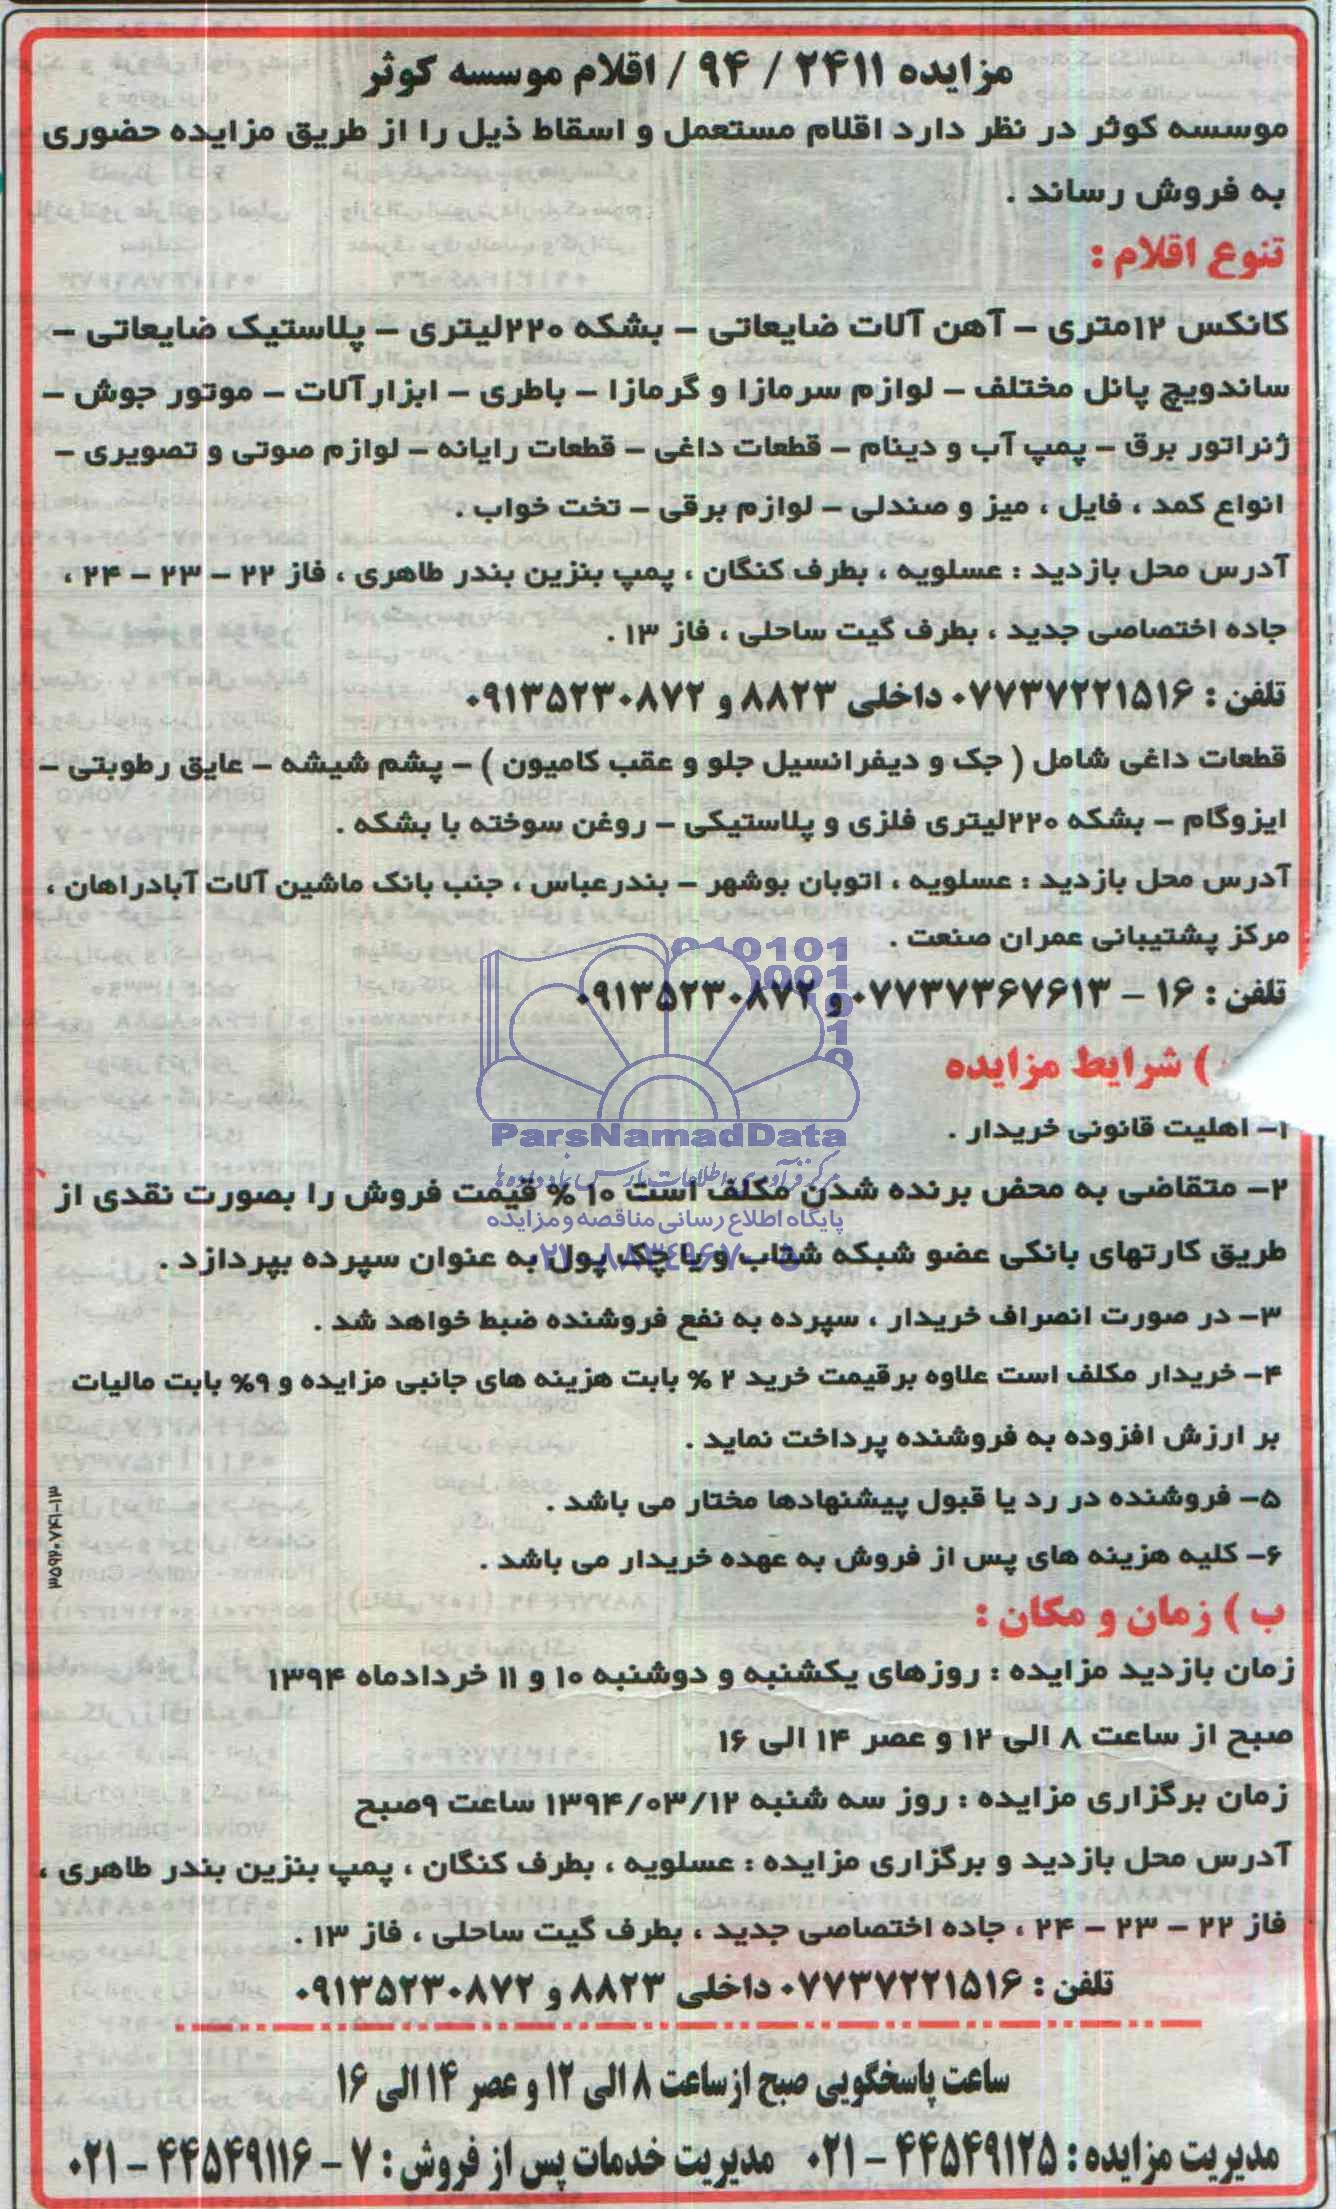 مزایده ۲۴۱۱ / ۹۴ / اقلام موسسه کوثر
موسسه کوثر در نظر دارد اقلام مستعمل و اسقاط ذیل را از طریق مزایده حضوری
به فروش رساند .
تنوع اقلام :
کانکس ۱۲متری – آهن آلات ضایعاتی – بشکه ۲۲۰لیتری – پلاستیک ضایعاتی –
ساندویچ پانل مختلف – لوازم سرمازا و گرمازا – باطری – ابزارآلات – موتور جوش –
ژنراتور برق – پمپ آب و دینام – قطعات داغی – قطعات رایانه – لوازم صوتی و تصویری –
انواع کمد ، فایل ، میز و صندلی – لوازم برقی – تخت خواب .
آدرس محل بازدید : عسلویه ، بطرف کنگان ، پمپ بنزین بندر طاهری ، فاز ۲۲ – ۲۳ – ۲۴ ،
جاده اختصاصی جدید ، بطرف گیت ساحلی ، فاز ۱۳ .
تلفن : ۰۷۷۳۷۲۲۱۵۱۶ داخلی ۸۸۲۳ و ۰۹۱۳۵۲۳۰۸۷۲
قطعات داغی شامل ( جک و دیفرانسیل جلو و عقب کامیون ) – پشم شیشه – عایق رطوبتی –
ایزوگام – بشکه ۲۲۰لیتری فلزی و پلاستیکی – روغن سوخته با بشکه .
آدرس محل بازدید : عسلویه ، اتوبان بوشهر – بندرعباس ، جنب بانک ماشین آلات آبادراهان ،
مرکز پشتیبانی عمران صنعت .
تلفن : ۱۶ – ۰۷۷۳۷۳۶۷۶۱۳ و ۰۹۱۳۵۲۳۰۸۷۲
) شرایط مزایده
۱– اهلیت قانونی خریدار .
ParsNamadData
مرکز فرآوری اطلاعات پارس نماد داده ها
۲– متقاضی به محض برنده شدن مکلف است ۱۰ % قیمت فروش را بصورت نقدی از
پایگاه اطلاع رسانی مناقصه و مزایده
طریق کارتهای بانکی عضو شبکه شتاب و یا چک پول به عنوان سپرده بپردازد .
۰۲۱-۸۸۳۴۹۶۷۰-۵
۳– در صورت انصراف خریدار ، سپرده به نفع فروشنده ضبط خواهد شد .
۴– خریدار مکلف است علاوه برقیمت خرید ۲ % بابت هزینه های جانبی مزایده و ۹% بابت مالیات
بر ارزش افزوده به فروشنده پرداخت نماید .
۵– فروشنده در رد یا قبول پیشنهادها مختار می باشد .
۶– کلیه هزینه های پس از فروش به عهده خریدار می باشد .
ب ) زمان و مکان :
زمان بازدید مزایده : روزهای یکشنبه و دوشنبه ۱۰ و ۱۱ خردادماه ۱۳۹۴
صبح از ساعت ۸ الی ۱۲ و عصر ۱۴ الی ۱۶
زمان برگزاری مزایده : روز سه شنبه ۱۳۹۴/۰۳/۱۲ ساعت ۹صبح
آدرس محل بازدید و برگزاری مزایده : عسلویه ، بطرف کنگان ، پمپ بنزین بندر طاهری ،
فاز ۲۲ – ۲۳ – ۲۴ ، جاده اختصاصی جدید ، بطرف گیت ساحلی ، فاز ۱۳ .
تلفن : ۰۷۷۳۷۲۲۱۵۱۶ داخلی ۸۸۲۳ و ۰۹۱۳۵۲۳۰۸۷۲
ساعت پاسخگویی صبح ازساعت ۸ الی ۱۲ و عصر ۱۴ الی ۱۶
مدیریت مزایده : ۴۴۵۴۹۱۲۵ – ۰۲۱ مدیریت خدمات پس از فروش : ۷ – ۴۴۵۴۹۱۱۶ – ۰۲۱